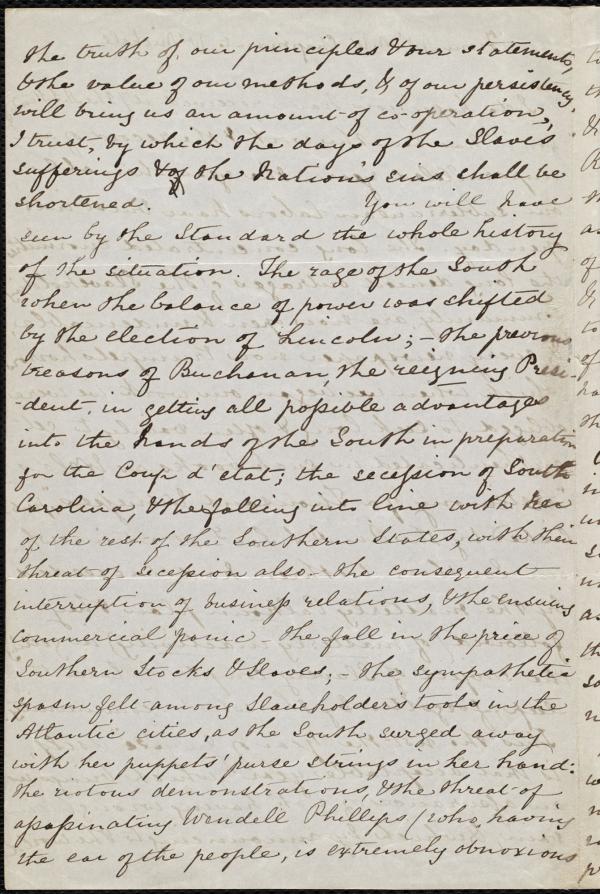 the truth of our principles & our statements,
& the value of our methods, & of our persistency,
will bring us an amount of co-operation,
I trust, by which the days of the Slave's
sufferings & of the Nation's sins shall be
shortened. You will have
seen by the Standard the whole history
of the situation. The rage of the South
when the balance of power was shifted
by the election of Lincoln; - the previous
treasons of Buchanan, the reigning Presi-
-dent, in getting all possible advantages
into the hands of the South in preparation
for the Coup d'etat; the secession of South
Carolina, & the falling into line with her
of the rest of the Southern States, with their
threat of secession also - the consequent
interruption of business relations, & the ensuing
commercial panic - the fall in the price of
Southern Stocks & Slaves; - the sympathetic
spasm felt among Slaveholder's tools in the
Atlantic cities, as the South surged away
with her puppets' purse strings in her hand:
the riotous demonstrations, & the threat of
assassinating Wendell Phillips (who, having
the ear of the people, is extremely obnoxious